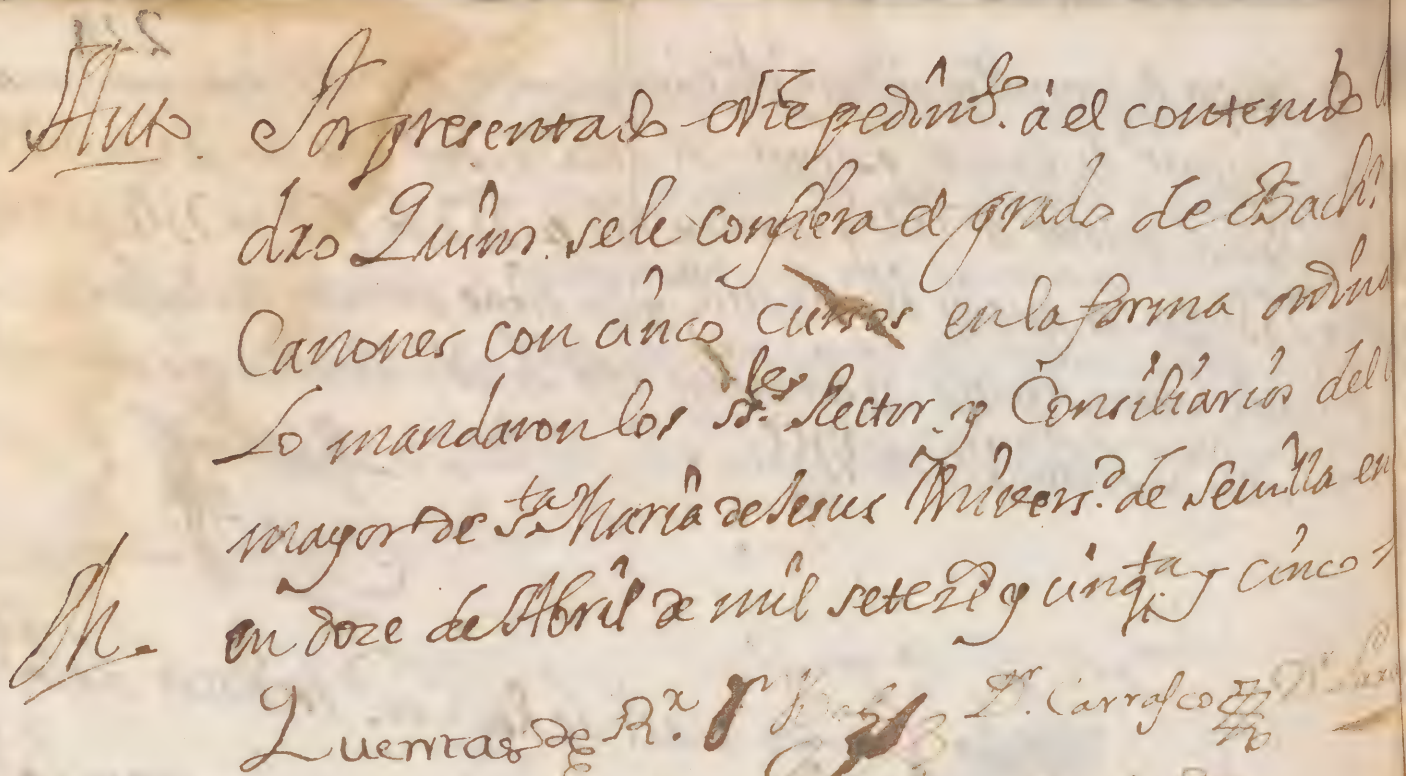 Auto. Por presentado este pedim.to â el contenido
dro Quiros. se le confiera el grado de Bachr.
Canones con cinco cursos en la forma ordina
Lo mandaron los Sres. Rector, y Consiliarios del
mayor de Sta Maria de Jesus Univers.d de Sevilla en
M. en doze de Abril de mil setezs y cinqta. y cinco
Quentas de R.x Dr. Carrasco